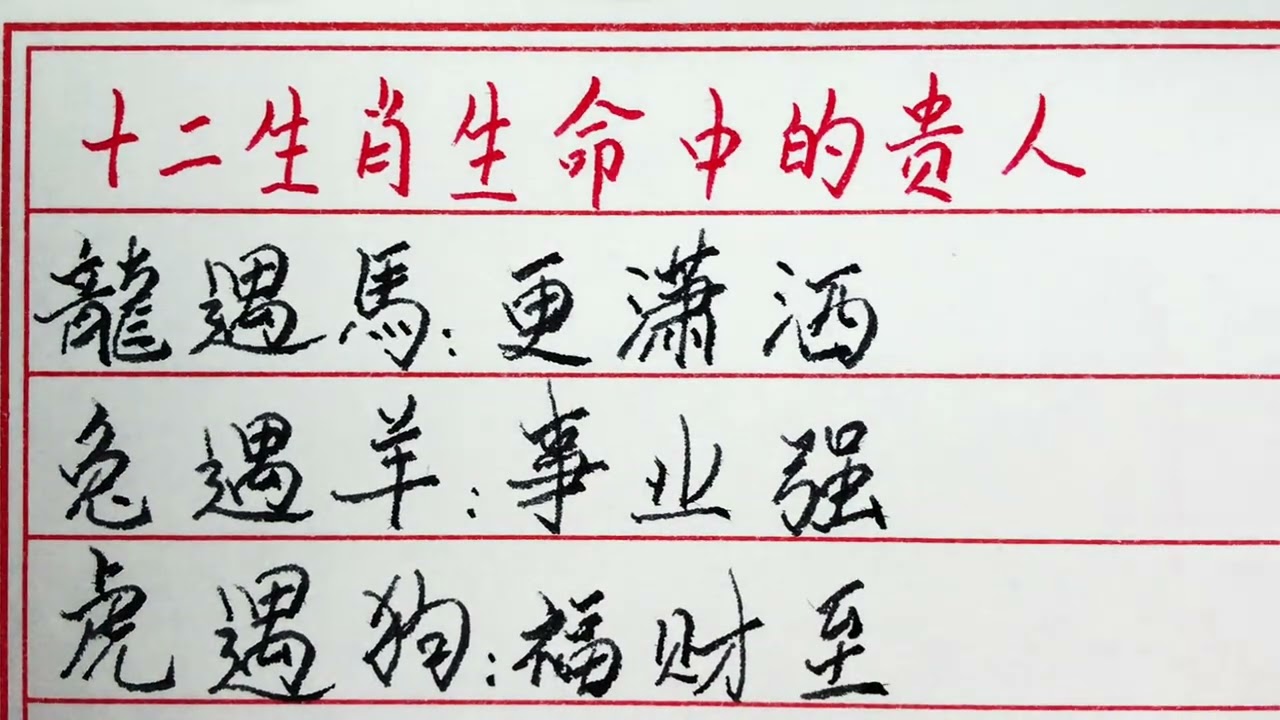 十二生肖生命中的贵人
龍遇馬:更潇洒
兔遇羊:事业强
虎遇狗:福财至